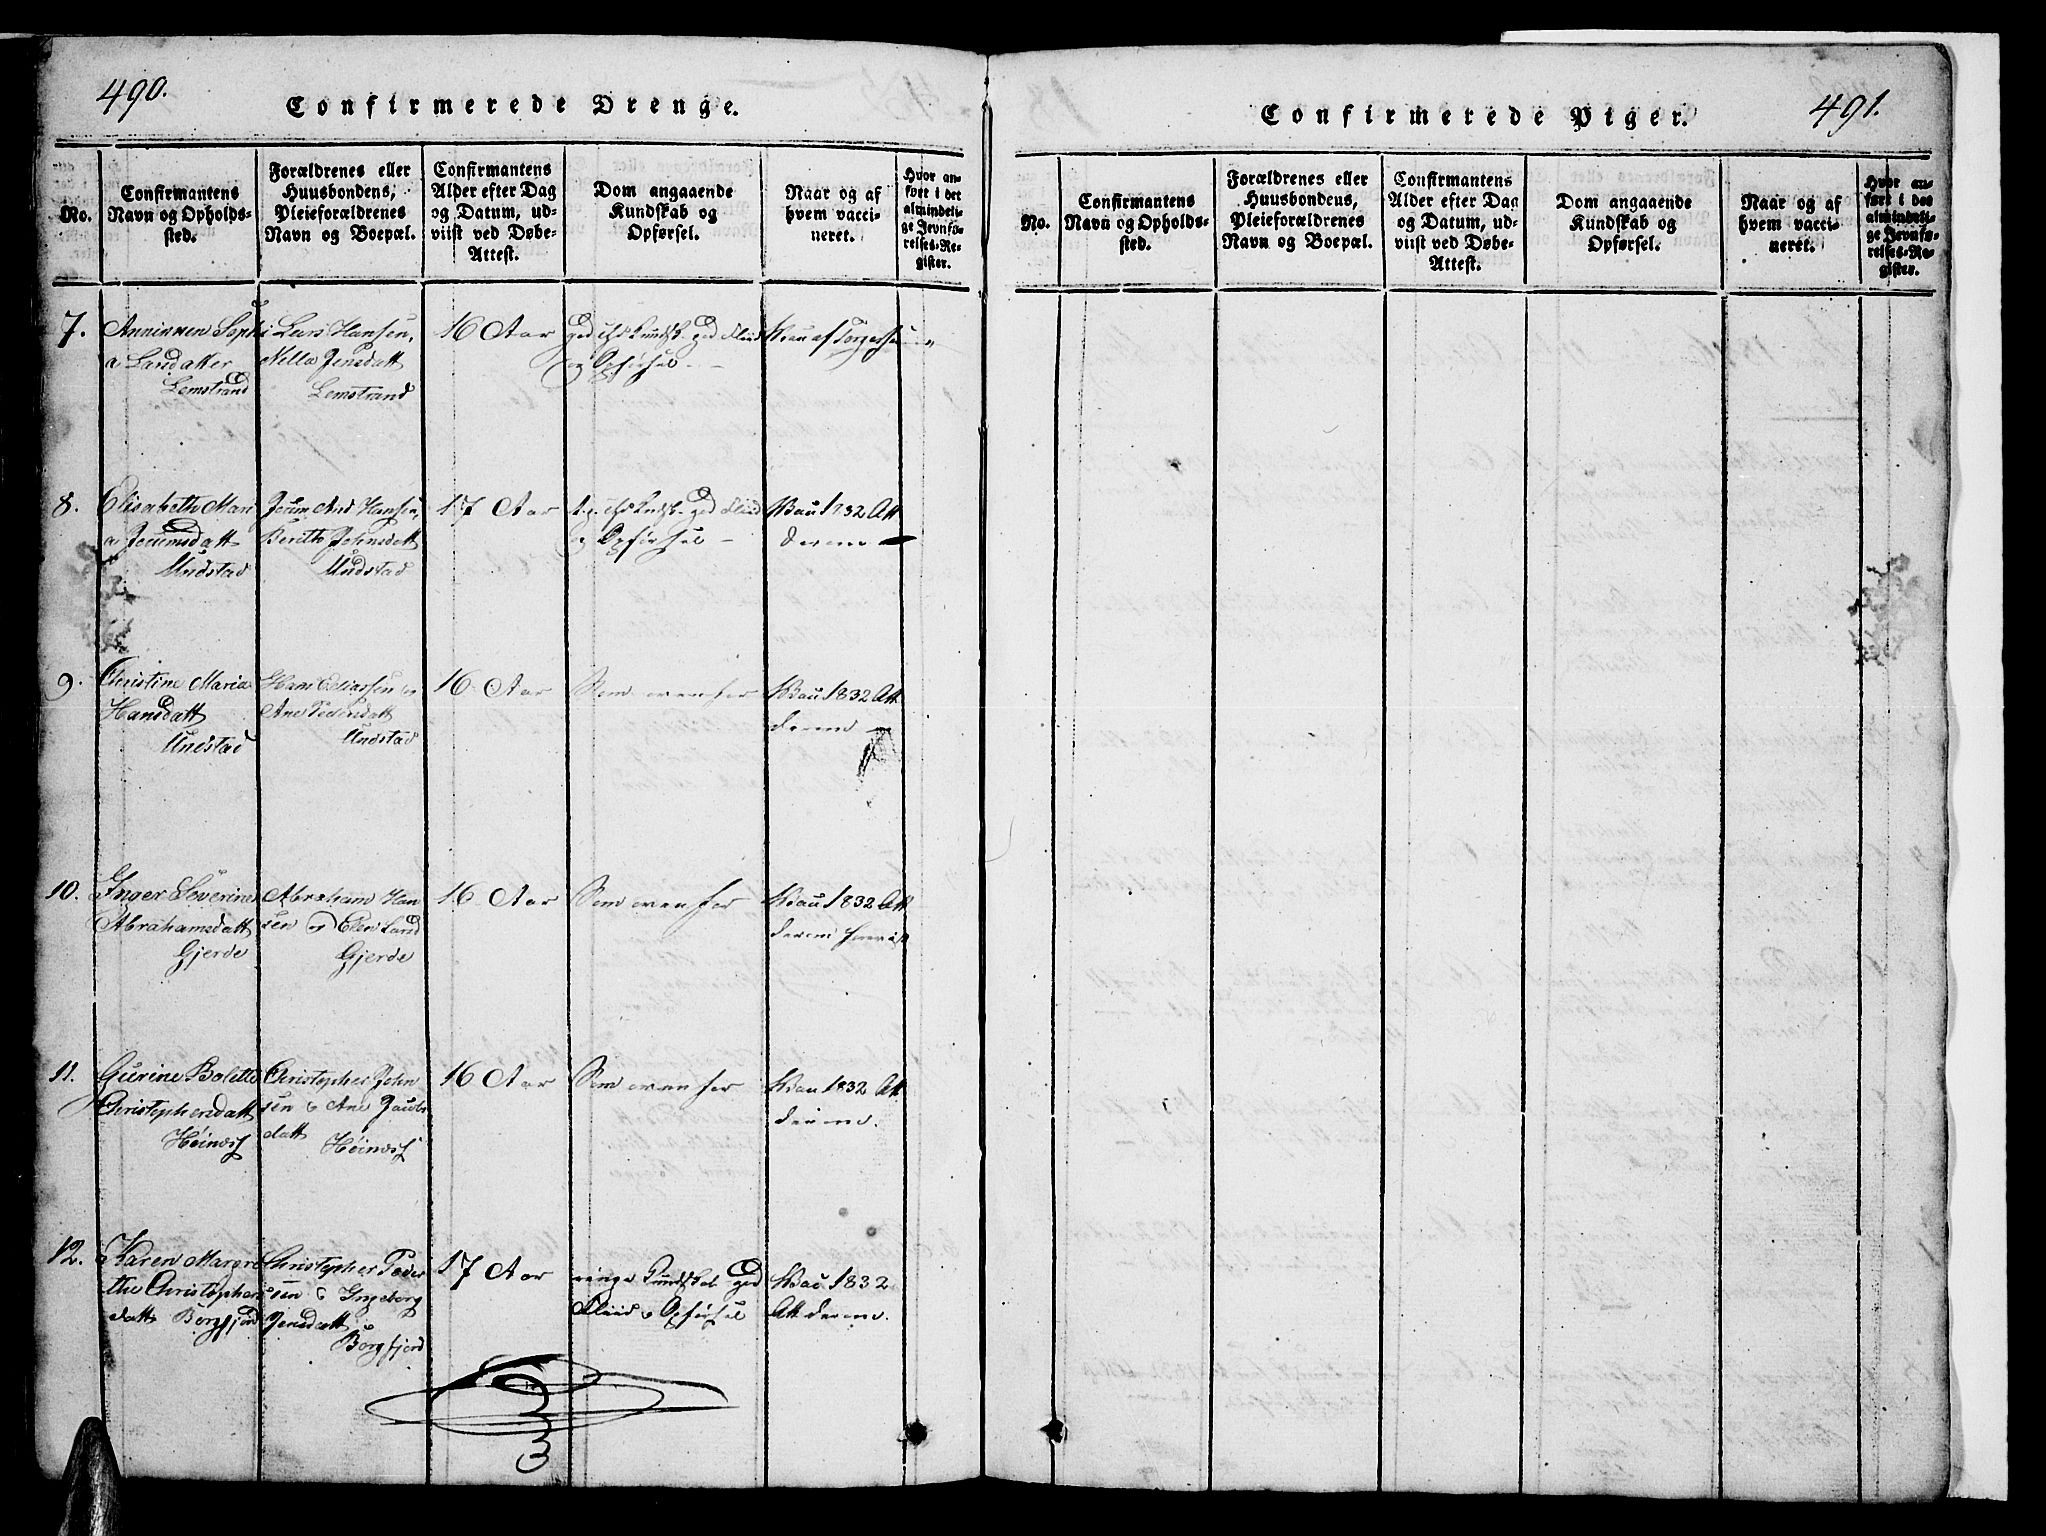 490.
Confirmerede Drenge.
No.
Confirmantens
Navn og Opholds-
sted.
Forældrenes eller
Huusbondens,
Pleieforældrenes
Navn og Boepæl.
Confirmantens
Alder efter Dag
og Datum, ud-
viist ved Døbe-
Attest.
Dom angaaende
Kundskab og
Opførsel.
Naar og af
hvem vacci-
neret.
Hvor an-
ført i det
almindeli-
ge Jevnfø-
relses-Re-
gister.
7.
Annikken Sophi
a Larsdatter
Lemstrand
Lars Hansen,
Nella Jensdatt
Lemstrand
16 Aar
god chr Kundsk. god Fliid
og Opførsel -
Bau af Torgersen
"
8.
Elisabeth Mari
a Jocumsdatt
Undstad
Jocum And Hansen,
Bereth Johnsdatt
Undstad
17 Aar
chr Kundsk. god Fliid
og Opførsel -
Bau 1832 Att
derom -
9.
Christine Maria
Hansdatt
Undstad
Hans Eliassen og
Ane Pedersdatt
Undstad
16 Aar
Som ovenfor
Bau 1832 Att
derom -
10.
Inger Severine
Abrahamsdatt
Gjerde
Abraham Han
sen og Elen Lars
Gjerde
16 Aar
Som ovenfor
Bau 1832 Att
derom foreviist
11.
Gurine Bolette
Christophersdatt
Høinæss
Christopher John
sen & Ane Jacobs
datt
Høinæss
16 Aar
Som ovenfor
Bau 1832 Att
derom.
12.
Karen Margre
the Christophers
datt Borgfjord
Christopher Peder
sen & Ingeborg
Jensdatt
Borgfjord
17 Aar
ringe Kundskab god
Fliid & Opførsel
Bau 1832
Att derom.
491.
Confirmerede Piger.
No.
Confirmantens
Navn og Opholds-
sted.
Forældrenes eller
Huusbondens,
Pleieforældrenes
Navn og Boepæl.
Confirmantens
Alder efter Dag
og Datum, ud-
viist ved Døbe-
Attest.
Dom angaaende
Kundskab og
Opførsel.
Naar og af
hvem vacci-
neret.
Hvor an-
ført i det
almindeli-
ge Jevnfø-
relses-Re-
gister.